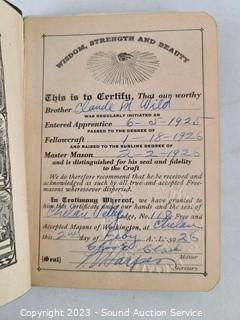 WISDOM, STRENGTH AND BEAUTY
This is to Certify, That our worthy
Brother Claude M. Wild
WAS REGULARLY INITIATED AN
Entered Apprentice 6-5-1925
PASSED TO THE DEGREE OF
Fellowcraft 1-18-1926
AND RAISED TO THE SUBLIME DEGREE OF
Master Mason 2-2-1926
and is distinguished for his zeal and fidelity
to the Craft
We do therefore recommend that he be received and
acknowledged as such by all true and accepted Free-
masons wheresoever dispersed.
In Testimony Whereof, we have granted to
him this Certificate under our hands and the seal of
Chelan Lodge, No. Free and
Accepted Masons of Washington, at Chelan
this 2nd day of Feby A. L. 5926
Clark
Master
(Seal)
Secretary
Copyright © 2023 - Sound Auction Service